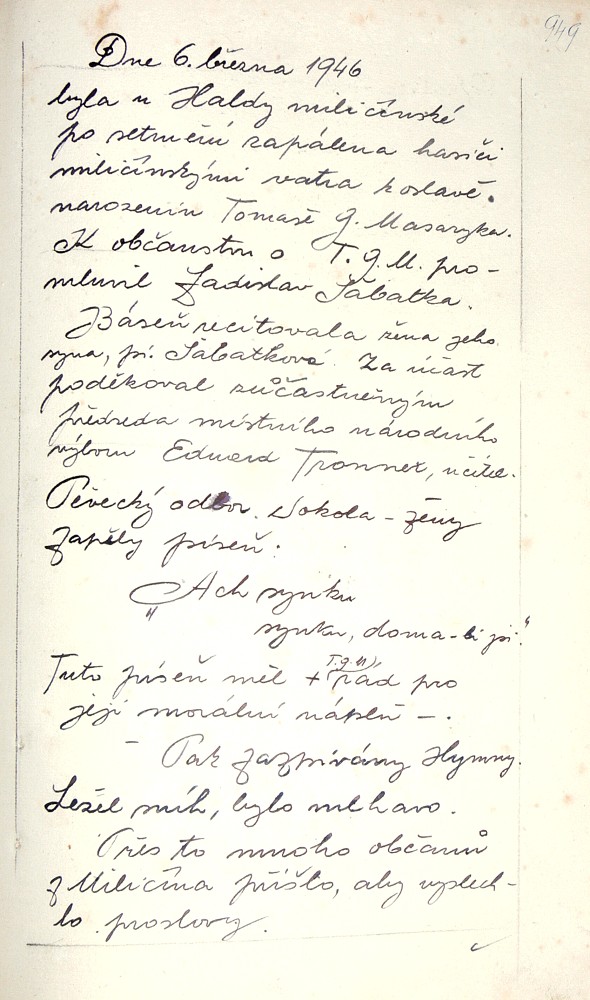 949
Dne 6. března 1946
byla u Haldy miličínské
po setmění zapálena hasiči
miličínskými vatra k oslavě
narozenin Tomáše G. Masaryka.
K občanstvu o T. G. M. pro-
mluvil Ladislav Šabatka.
Báseň recitovala žena jeho
syna, pí. Šabatková. Za účast
poděkoval zůčastněným
předseda místního národního
výboru Eduard Tronner, učitel.
Pěvecký odbor Sokola - ženy
zapěly píseň:
"Ach synku
synku, doma-li jsi."
Tuto píseň měl + T.G.M. rád pro
její morální náplň -.
- Pak zazpívány Hymny.
Ležel sníh, bylo mlhavo.
Přes to mnoho občanů
z Miličína přišlo, aby vyslech-
lo proslovy.